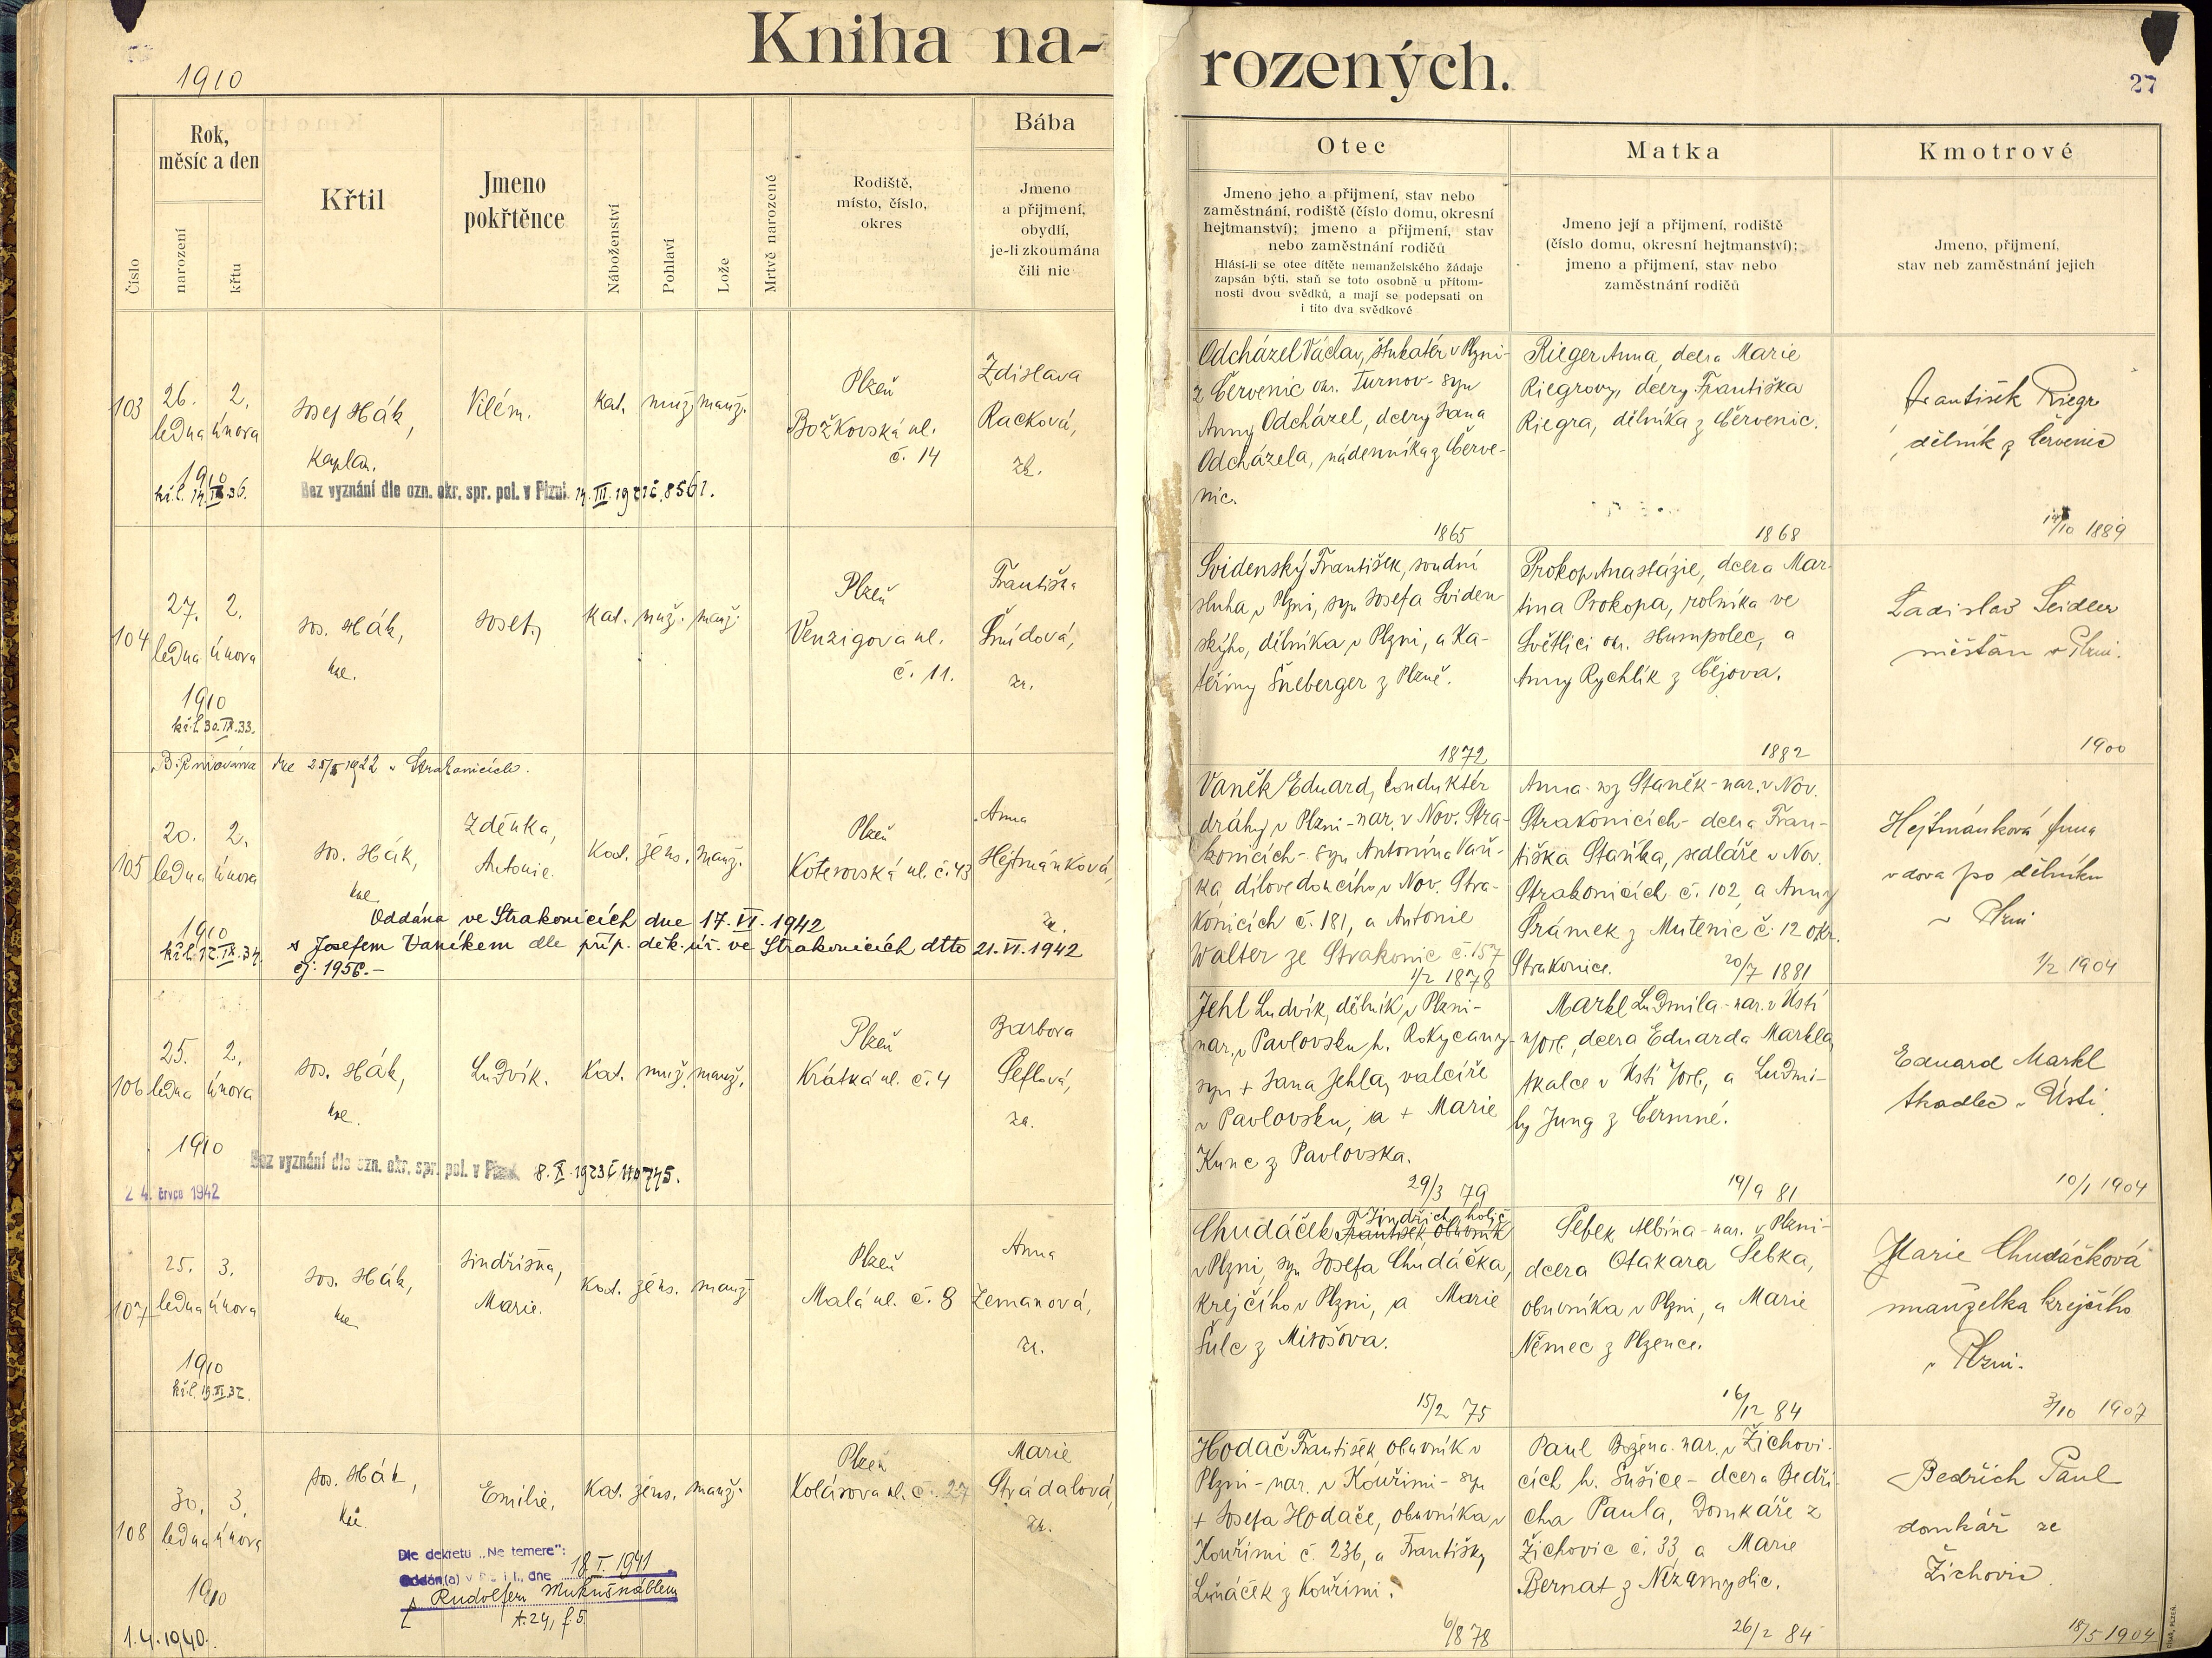 Kniha na-
rozených.
1910
27
Rok,
měsíc a den
Číslo
narození
křtu
Křtil
Jmeno
pokřtěnce
Náboženství
Pohlaví
Lože
Mrtvě narozené
Rodiště,
místo, číslo,
okres
Bába
Jmeno
a příjmení,
obydlí,
je-li zkoumána
čili nic
Otec
Jmeno jeho a příjmení, stav nebo
zaměstnání, rodiště (číslo domu, okresní
hejtmanství); jmeno a příjmení, stav
nebo zaměstnání rodičů
Hlásí-li se otec dítěte nemanželského žádaje
zapsán býti, staň se toto osobně u přítom-
nosti dvou svědků, a mají se podepsati on
i tito dva svědkové
Matka
Jmeno její a příjmení, rodiště
(číslo domu, okresní hejtmanství);
jmeno a příjmení, stav nebo
zaměstnání rodičů
Kmotrové
Jmeno, příjmení,
stav neb zaměstnání jejich
103
26. 2.
ledna února
1910
kř. l. 14. IX. 36.
Josef Hák,
kaplan.
Vilém.
kat. muž. manž.
Plzeň
Božkovská ul.
č. 14
Zdislava
Racková,
zk.
Bez vyznání dle ozn. okr. spr. pol. v Plzni 14. III. 1921 č. 8561.
Odcházel Václav, štukatér v Plzni-
z Červenic okr. Turnov- syn
Anny Odcházel, dcery Jana
Odcházela, nádenníka z Červe-
nic.
1865
Rieger Anna, dcera Marie
Riegrovy, dcery Františka
Riegra, dělníka z Červenic.
1868
František Riegr
dělník z Červenic
1889
104
27. 2.
ledna února
1910
kř. l. 30. IX. 33.
Jos. Hák,
kpl.
Josef,
kat. muž. manž.
Plzeň
Venzigova ul.
č. 11.
Františka
Šmídová,
zk.
Svidenský František, soudní
sluha v Plzni, syn Josefa Sviden
ského, dělníka v Plzni, a Ka-
teřiny Šneberger z Plzně.
1872
Prokop Anastázie, dcera Mar-
tina Prokopa, rolníka ve
Světlici okr. Humpolec, a
Anny Rychlík z Čejova.
1882
Ladislav Seidler
měšťan v Plzni.
1900
Biřmována dne 25/5 1922 v Strakonicích.
105
20. 2.
ledna února
1910
Jos. Hák,
kpl.
Zdeňka,
Antonie.
Kat. žens. manž.
Plzeň
Koterovská ul. č. 43
Anna
Hejtmánková,
zk.
Oddána ve Strakonicích dne 17. VI. 1942
s Josefem Vaníkem dle příp. děk. úř. ve Strakonicích dtto 21. VI. 1942
čj: 1956.-
Vaněk Eduard, konduktér
dráhy v Plzni-nar. v Nov. Stra-
konicích- syn Antonína Vaň-
ka dílovedoucího v Nov. Stra-
konicích č. 181, a Antonie
Walter ze Strakonic č. 157
1/2 1878
Anna roz Staněk-nar. v Nov.
Strakonicích- dcera Fran-
tiška Staňka, sedláře v Nov.
Strakonicích č. 102, a Anny
Šrámek z Mutěnic č. 12 okr.
Strakonice.
20/7 1881
Hejtmánková Anna
vdova po dělníku
v Plzni
1/2 1904
106
25. 2.
ledna února
1910
24. Června 1942
Jos. Hák,
kpl.
Ludvík.
Kat. muž. manž.
Plzeň
Krátká ul. č. 4
Barbora
Šeflová,
zk.
Bez vyznání dle ozn. okr. spr. pol. v Plzni 8. X. 1923 č 110745.
Jehl Ludvík, dělník v Plzni-
nar. v Pavlovsku h. Rokycany-
syn + Jana Jehla, valcíře
v Pavlovsku, a + Marie
Kunc z Pavlovska.
29/3 79
Markl Ludmila-nar. v Ústí
n/Orl., dcera Eduarda Markla,
tkalce v Ústí n/Orl., a Ludmi-
ly Jung z Čermné.
19/9 81
Eduard Markl
tkadlec v Ústí.
10/1 1904
107
25. 3.
ledna února
1910
kř. l. 19. XI. 32.
Jos. Hák,
kpl
Jindřiška,
Marie.
Kat. žens. manž.
Plzeň
Malá ul. č. 8
Anna
Zemanová,
zk.
Jindřich, holič
Chudáček František obuvník
v Plzni, syn Josefa Chudáčka,
krejčího v Plzni, a Marie
Šulc z Mirošova.
15/2 75
Šebek Albína-nar. v Plzni-
dcera Otakara Šebka,
obuvníka v Plzni, a Marie
Němec z Plzence.
16/12 84
Marie Chudáčková
manželka krejčího
v Plzni.
3/10 1907
108
30. 3.
ledna února
1910
1.4.1940.
Jos. Hák,
kpl.
Emilie,
Kat. žens. manž.
Plzeň
Kolárova ul. č. 27
Marie
Strádalová,
zk.
Dle dekretu „Ne temere":
Oddán(a) v Plzni I., dne 18. I. 1941
s Rudolfem Mukušnáblem
t. 24, f. 5.
Hodač František, obuvník v
Plzni-nar. v Kouřimi- syn
+ Josefa Hodače, obuvníka v
Kouřimi č. 236, a Františky
Luňáček z Kouřimi.
6/8 78
Paul Božena. nar. v Žichovi-
cích h. Sušice- dcera Bedři-
cha Paula, Domkáře z
Žichovic č. 33, a Marie
Bernat z Nezamyslic.
26/2 84
Bedřich Paul
domkář ze
Žichovic
18/5 1904